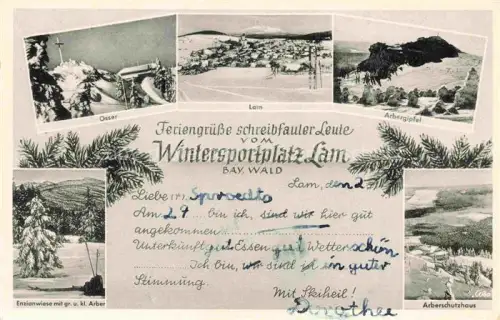 Osser
Lam
Arbergipfel
Feriengrüße schreibfauler Leute
VOM
Wintersportplatz Lam
BAY. WALD
Lam, den 2.
Liebe
Am 29 ... bin ich, sind wir hier gut
angekommen
Unterkunft gut Essen gut Wetter schön
Ich bin, wir sind ist in guter
Stimmung.
Mit Skiheil!
Dorothee
Enzianwiese mit gr. u. kl. Arber
Arberschutzhaus